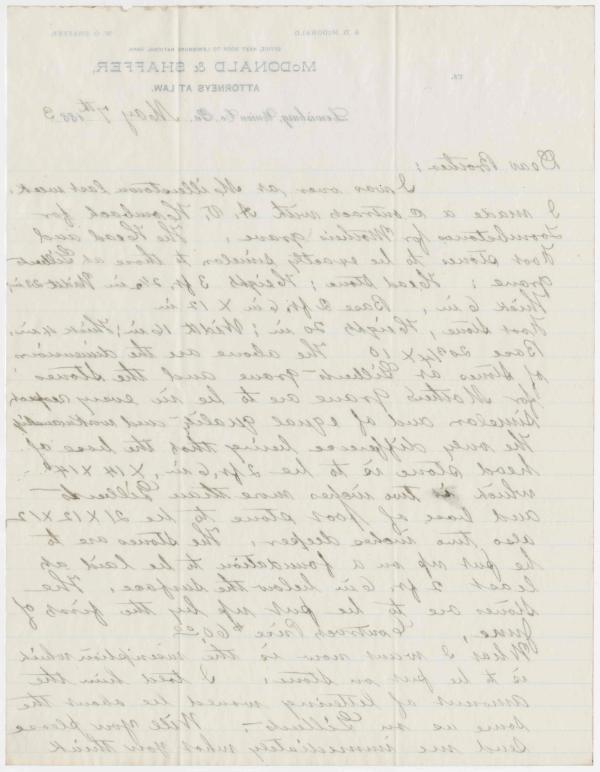 A. D. McDONALD. W. O. SHAFFER.
OFFICE, NEXT DOOR TO LEWISBURG NATIONAL BANK.
McDONALD & SHAFFER,
ATTORNEYS AT LAW.
Lewisburg, Union Co. Pa. May 7th 1883
Dear Brother:
I was over at Millerstown last week.
I made a contract with A. O. for
Tombstones for Mother's grave. The Head and
Foot stones to be exactly similar to those at Gilbert's
grave: Head stone; Height 3 ft. 2½ in Width 22 in;
thick 6 in, Base 2 ft. 6 in X 12 in
Foot stone, Height 20 in; Width 16 in; Thick 4 in.
Base 20¾ X 10 The above are the dimensions
of stones at Gilbert's grave and the stones
for Mother's grave are to be in every respect
similar and of equal quality and workmanship
the only difference being that the base of
head stone is to be 2 ft, 6 in, X 14 X 14
which is two inches more than Gilbert's
and base of foot stone to be 21 X 12 X 12
also two inches deeper. The stones are to
be put up on a foundation to be laid at
least 2 ft. 6 in below the surface. The
stones are to be put up by the first of
June, Contract Price $60.00
What I want now is the inscription which
is to be put on stone. I told him the
amount of lettering would be about the
same as on Gilbert's. Will you please
send me immediately what you think